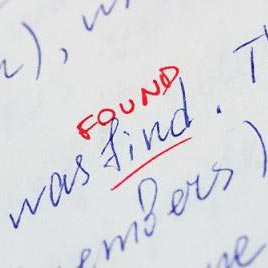 ), w
FOUND
was find. T
members)
ne